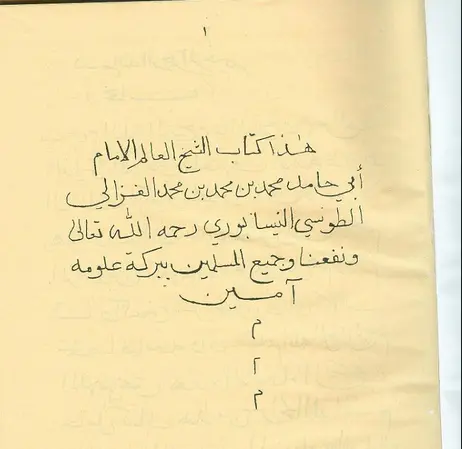 ١
هذا كتاب الشيخ العالم الامام
أبي حامد محمد بن محمد بن محمد الغزالي
الطوسي النيسابوري رحمه الله تعالى
ونفعنا وجميع المسلمين ببركة علومه
آمين
م
٢
م